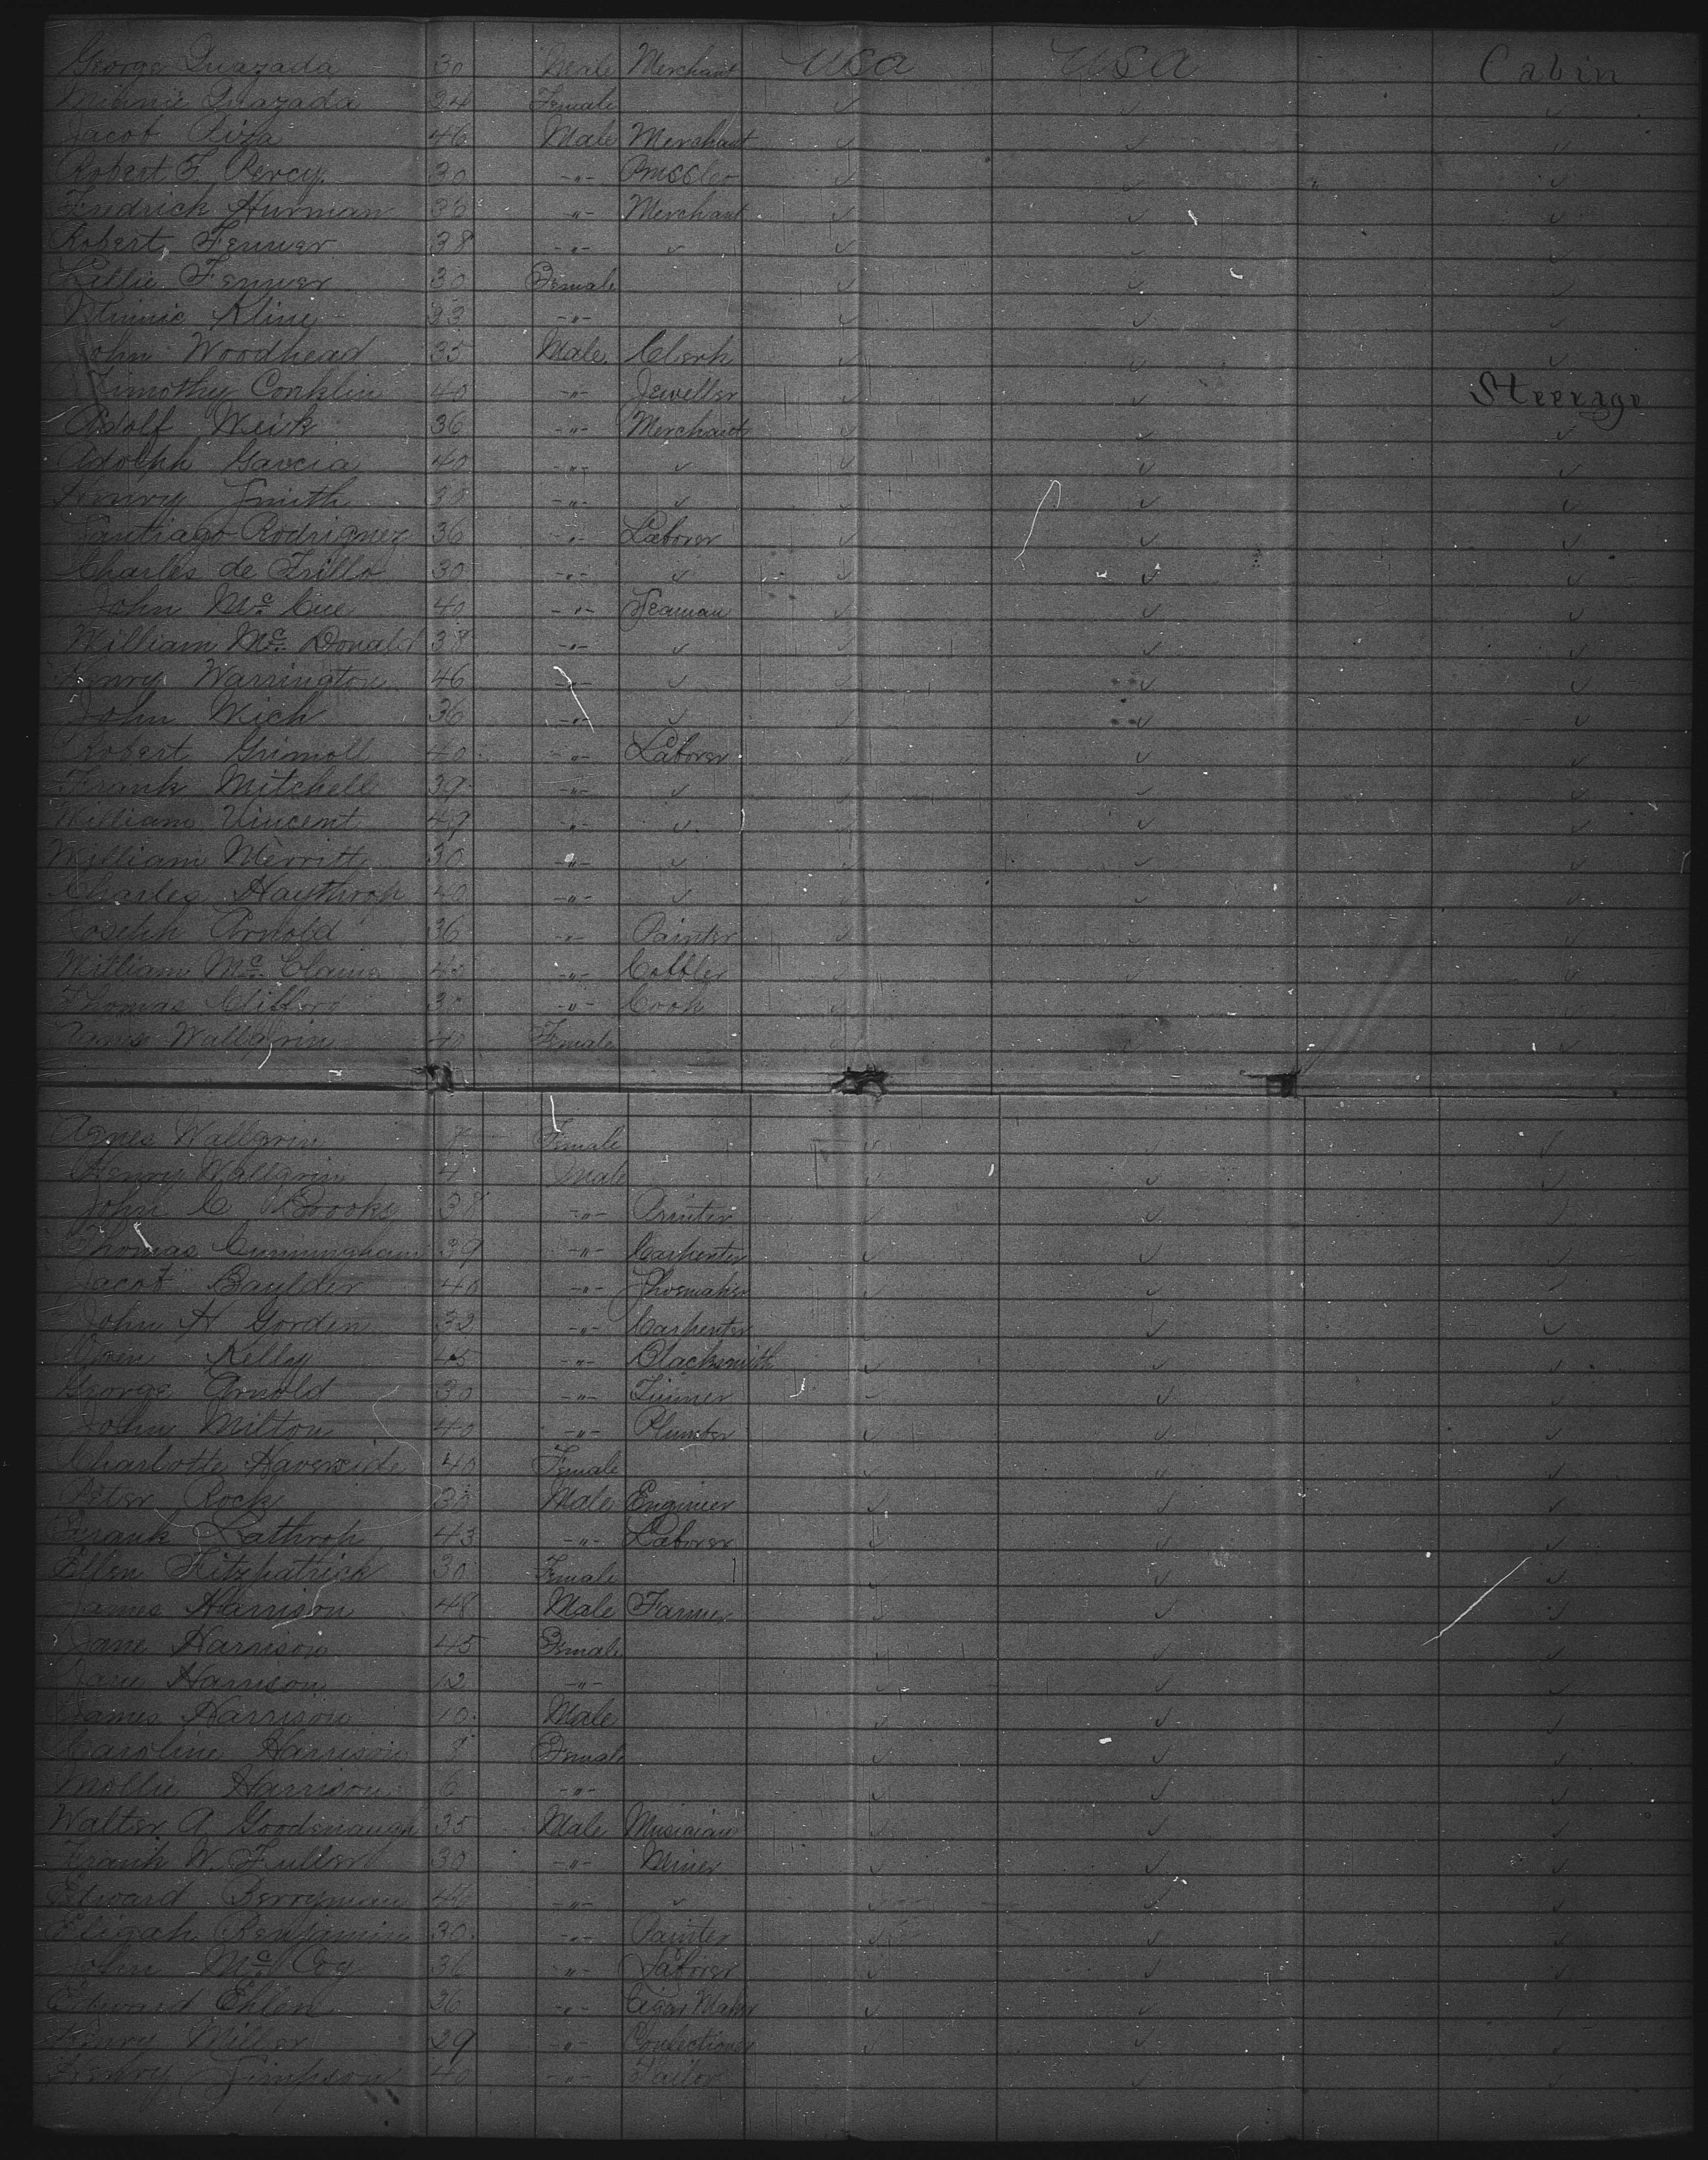 George Quazada 30 Male Merchant USA USA Cabin
Minnie Quazada 24 Female ✓ ✓ ✓
Jacob 46 Male Merchant ✓ ✓ ✓
Robert F. Percy 30 -"- ✓ ✓ ✓
Fredrick Hurman 36 -"- Merchant ✓ ✓ ✓
Robert Fenner 38 -"- ✓ ✓ ✓ ✓
Lillie Fenner 30 Female ✓ ✓ ✓
Minnie Kling 33 -"- ✓ ✓ ✓
John Woodhead 35 Male Clerk ✓ ✓ ✓
Timothy Conklin 40 -"- Jeweller ✓ ✓ Steerage
Adolf Weik 36 -"- Merchant ✓ ✓ ✓
Adolph Garcia 40 -"- ✓ ✓ ✓ ✓
Henry Smith -"- ✓ ✓ ✓ ✓
Santiago Rodriguez 36 -"- Laborer ✓ ✓ ✓
Charles de Trillo 30 -"- ✓ ✓ ✓ ✓
John Mc Cue 40 -"- Seaman ✓ ✓ ✓
William Mc Donald 38 -"- ✓ ✓ ✓ ✓
Henry Warrington 46 -"- ✓ ✓ ✓ ✓
John Wich 36 -"- ✓ ✓ ✓ ✓
Robert Grimoll 40 -"- Laborer ✓ ✓ ✓
Frank Mitchell 39 -"- ✓ ✓ ✓ ✓
William Vincent 49 -"- ✓ ✓ ✓ ✓
William Merritt 30 -"- ✓ ✓ ✓ ✓
Charles Haythrop 40 -"- ✓ ✓ ✓ ✓
Joseph Arnold 36 -"- Painter ✓ ✓ ✓
William Mc -"- Cobbler ✓ ✓ ✓
Thomas Clifford -"- Cook ✓ ✓ ✓
Wallgrin 40 Female ✓ ✓ ✓
Agnes Wallgrin 7 Female ✓ ✓ ✓
Henry Wallgrin 4 Male ✓ ✓ ✓
John C Brooks 38 -"- Printer ✓ ✓ ✓
Thomas Cunningham 39 -"- Carpenter ✓ ✓ ✓
Jacob Baylder 40 -"- Shoemaker ✓ ✓ ✓
John H Gorden 32 -"- Carpenter ✓ ✓ ✓
Owen Kelly 45 -"- Blacksmith ✓ ✓ ✓
George Arnold 30 -"- Tinner ✓ ✓ ✓
John Milton 40 -"- Plumber ✓ ✓ ✓
Charlotte Haverside 40 Female ✓ ✓ ✓
Peter Rock Male Engineer ✓ ✓ ✓
Frank Lathrop 43 -"- Laborer ✓ ✓ ✓
Ellen Fitzpatrick 30 Female ✓ ✓ ✓
James Harrison 48 Male Farmer ✓ ✓ ✓
Jane Harrison 45 Female ✓ ✓ ✓
Jane Harrison 12 -"- ✓ ✓ ✓
James Harrison 10 Male ✓ ✓ ✓
Caroline Harrison 8 Female ✓ ✓ ✓
Mollie Harrison 6 -"- ✓ ✓ ✓
Walter A Goodenaugh 35 Male Musician ✓ ✓ ✓
Frank W. Fuller 30 -"- Miner ✓ ✓ ✓
Edward Berryman 40 -"- ✓ ✓ ✓ ✓
Eligah Benjamin 30 -"- Painter ✓ ✓ ✓
John Mc Coy 36 -"- Laborer ✓ ✓ ✓
Edward Ehlen 36 -"- Cigar Maker ✓ ✓ ✓
Henry Miller 29 -"- Confectioner ✓ ✓ ✓
Henry Simpson 40 -"- Tailor ✓ ✓